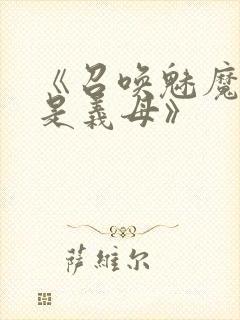 《召唤魅魔
是義母》
萨維尔